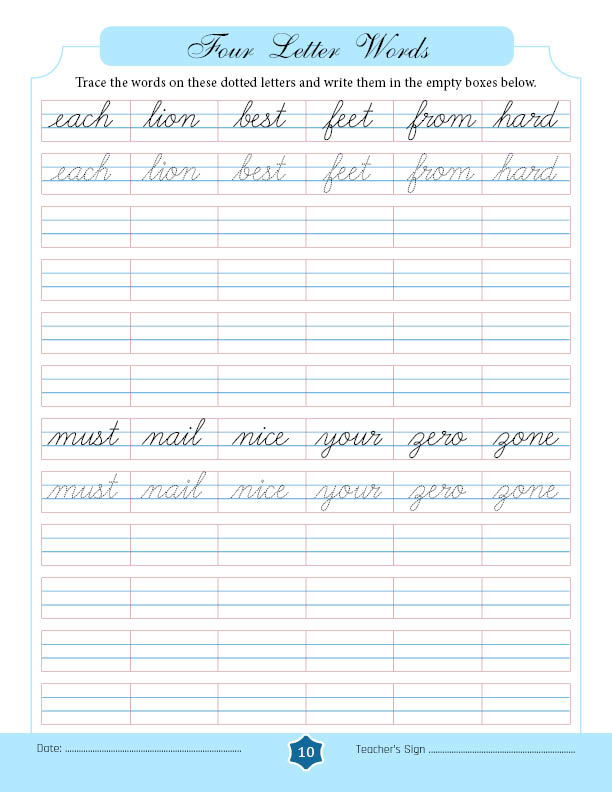 Four Letter Words
Trace the words on these dotted letters and write them in the empty boxes below.
each lion best feet from hard
each lion best feet from hard
must nail nice your zero zone
must nail nice your zero zone
Date: ........................................................................
10
Teacher's Sign ............................................................